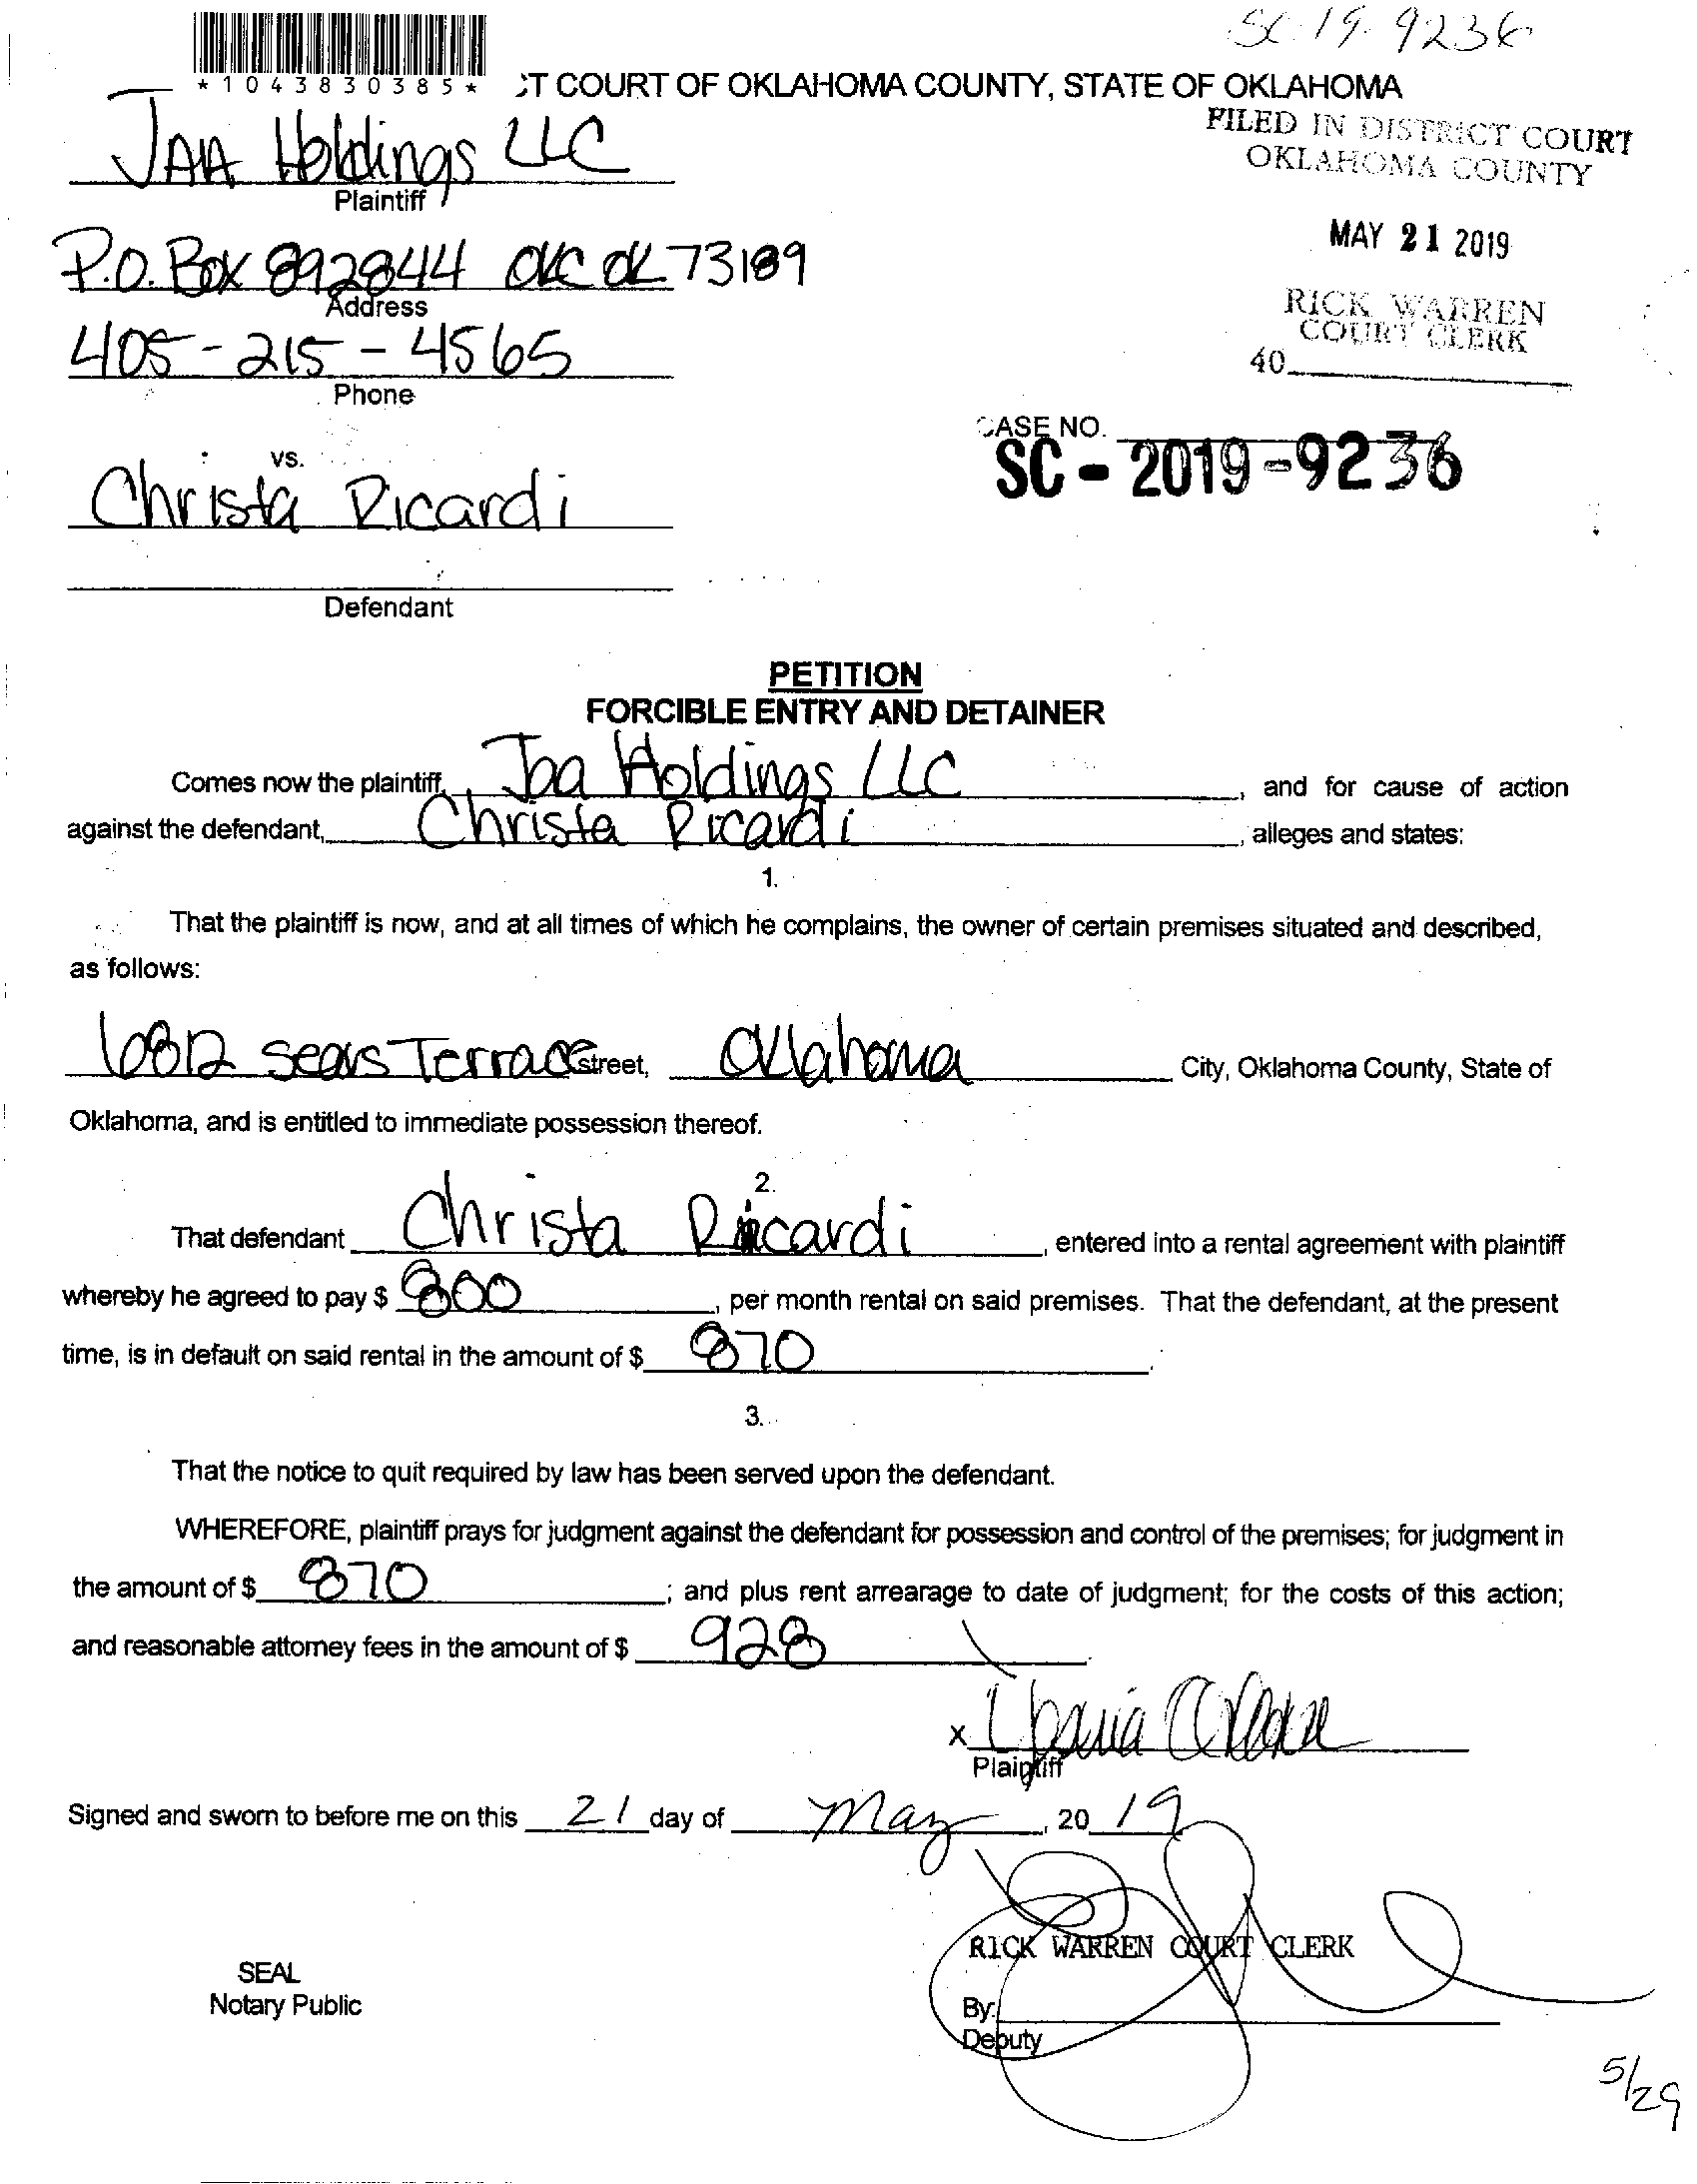 SC-19-9236
*1043830385*
CT COURT OF OKLAHOMA COUNTY, STATE OF OKLAHOMA
FILED IN DISTRICT COURT
OKLAHOMA COUNTY
JAA Holdings LLC
Plaintiff
MAY 21 2019
P.O. Box 892844 OKC OK 73189
Address
RICK WARREN
COURT CLERK
40
405-215-4565
Phone
CASE NO.
SC - 2019-9236
vs.
Christa Ricardi
Defendant
PETITION
FORCIBLE ENTRY AND DETAINER
Comes now the plaintiff, Jaa Holdings LLC, and for cause of action
against the defendant, Christa Ricardi, alleges and states:
1.
That the plaintiff is now, and at all times of which he complains, the owner of certain premises situated and described,
as follows:
6812 Sears Terrace street, Oklahoma City, Oklahoma County, State of
Oklahoma, and is entitled to immediate possession thereof.
2.
That defendant Christa Ricardi, entered into a rental agreement with plaintiff
whereby he agreed to pay $ 800, per month rental on said premises. That the defendant, at the present
time, is in default on said rental in the amount of $ 870.
3.
That the notice to quit required by law has been served upon the defendant.
WHEREFORE, plaintiff prays for judgment against the defendant for possession and control of the premises; for judgment in
the amount of $ 870; and plus rent arrearage to date of judgment; for the costs of this action;
and reasonable attorney fees in the amount of $ 928.
X
Plaintiff
Signed and sworn to before me on this 21 day of May, 20 19
RICK WARREN COURT CLERK
SEAL
Notary Public
By:
Deputy
5/29